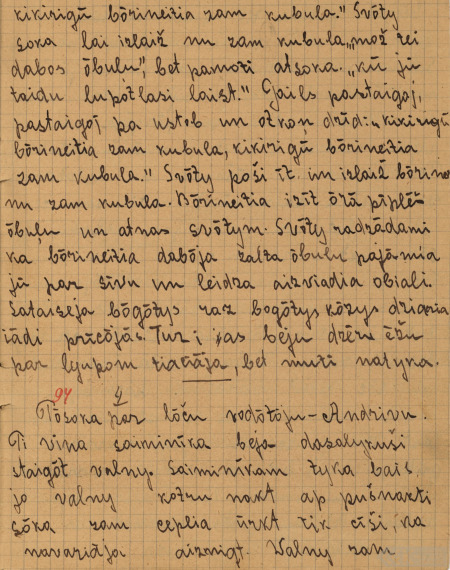 kikirigū bōrineitia zam kubula." Svōty
soka lai izlaiž nu zam kubula „mož zei
dabos ōbuļu", bet pamōži atsoka. „kū jū
taidu lupōtlasi laist." Gails pastaigoj,
pastaigoj pa ustob un ōtkoņ drīd: „kikirigū
bōrineitia zam kubula, kikirigū bōrineitia
zam kubula." Svōty poši īt un izlaiž bōrinei
nu zam kubula. Bōrineitia izīt ōrā pīplēš
ōbuļu un atnas svōtym. Svōty radzādami
ka bōrineitia dabōja zalta ōbuļu pajāmia
jū par sīvu un leidza aizviadia obiali.
Sataiseja bōgōtys raz bogōtys kōzys dzieria
iādi prīcōjās. Tur i as beju dzēru ēžu
par lyupom tiacāja, bet mutī natyka.
94 2
Tōsoka par lōču vodōtōju – Andrivu.
Ti vīna saiminīka beja dasalykuši
staigōt valny. Saiminīkam tyka bais
jo valny kotru nakt ap pušnakti
sōka zam ceplia ūrkt tik cīši, ka
navarieja aizmigt. Valny zam